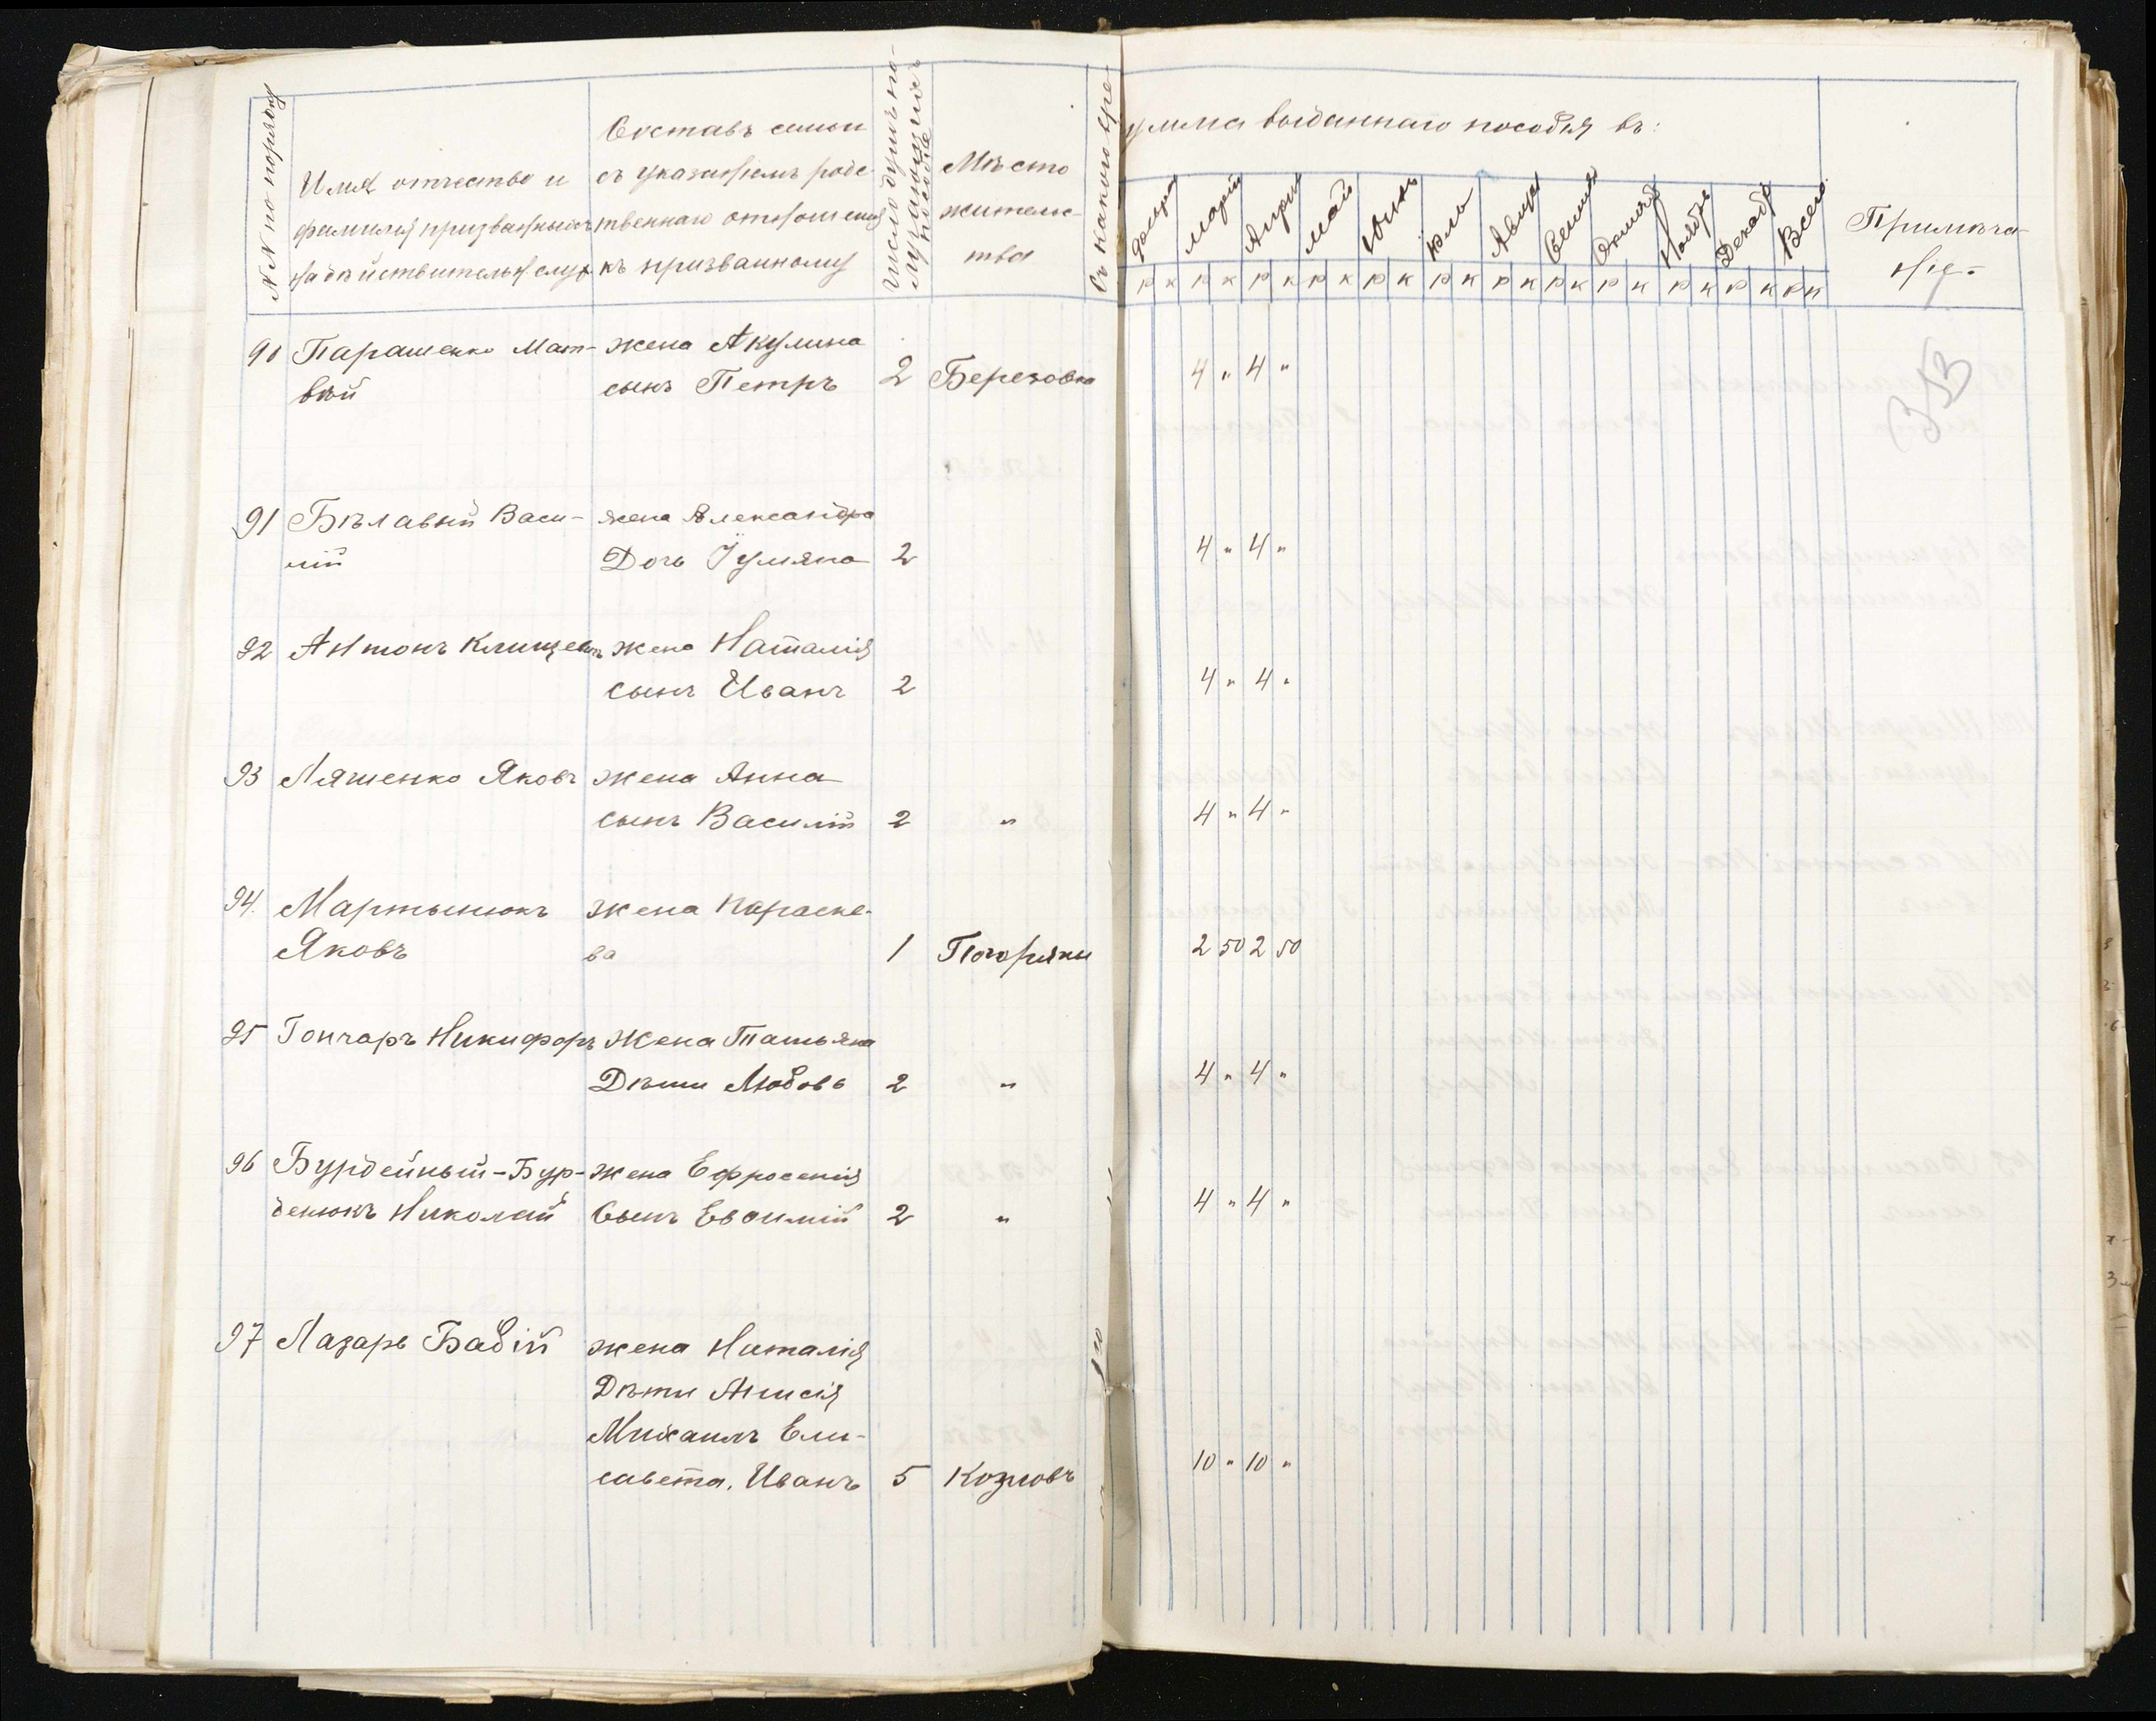 №№ по порядку
Имя отчество и
фамилія призваннаго
на дѣйствительн. служ
Составъ семьи
съ указаніемъ родс-
твеннаго отношенія
къ призванному
Число душъ по-
лучающихъ
пособіе
Мѣсто
жительс-
тва
Съ какого вре-
умма выданнаго пособія въ:
Мартъ Апрѣл Май Іюнь Іюль Августъ Сентяб Октяб Ноябрь Декабр Всего
р к р к р к р к р к р к р к р к р к р к р к р к
Примѣча-
ніе.
90 Парашенко Мат- жена Акулина
вѣй сынъ Петръ 2 Березовка 4 " 4 "
91 Бѣлавый Васи- жена Александра
лій Дочь Іуліяна 2 4 " 4 "
92 Антонъ Клищевъ жена Наталія
сынъ Иванъ 2 4 " 4 "
93 Ляшенко Яковъ жена Анна
сынъ Василій 2 " 4 " 4 "
94. Мартынюкъ жена Параске-
Яковъ ва 1 Погоряки 2 50 2 50
95 Гончаръ Никифоръ жена Татьяна
Дѣти Любовь 2 " 4 " 4 "
96 Бурдейный-Бур- жена Ефросенія
денюкъ Николай Сынъ Евѳимій 2 " 4 " 4 "
97 Лазарь Бабій жена Наталія
Дѣти Анисія
Михаилъ Ели-
савета, Иванъ 5 Козловъ 10 " 10 "